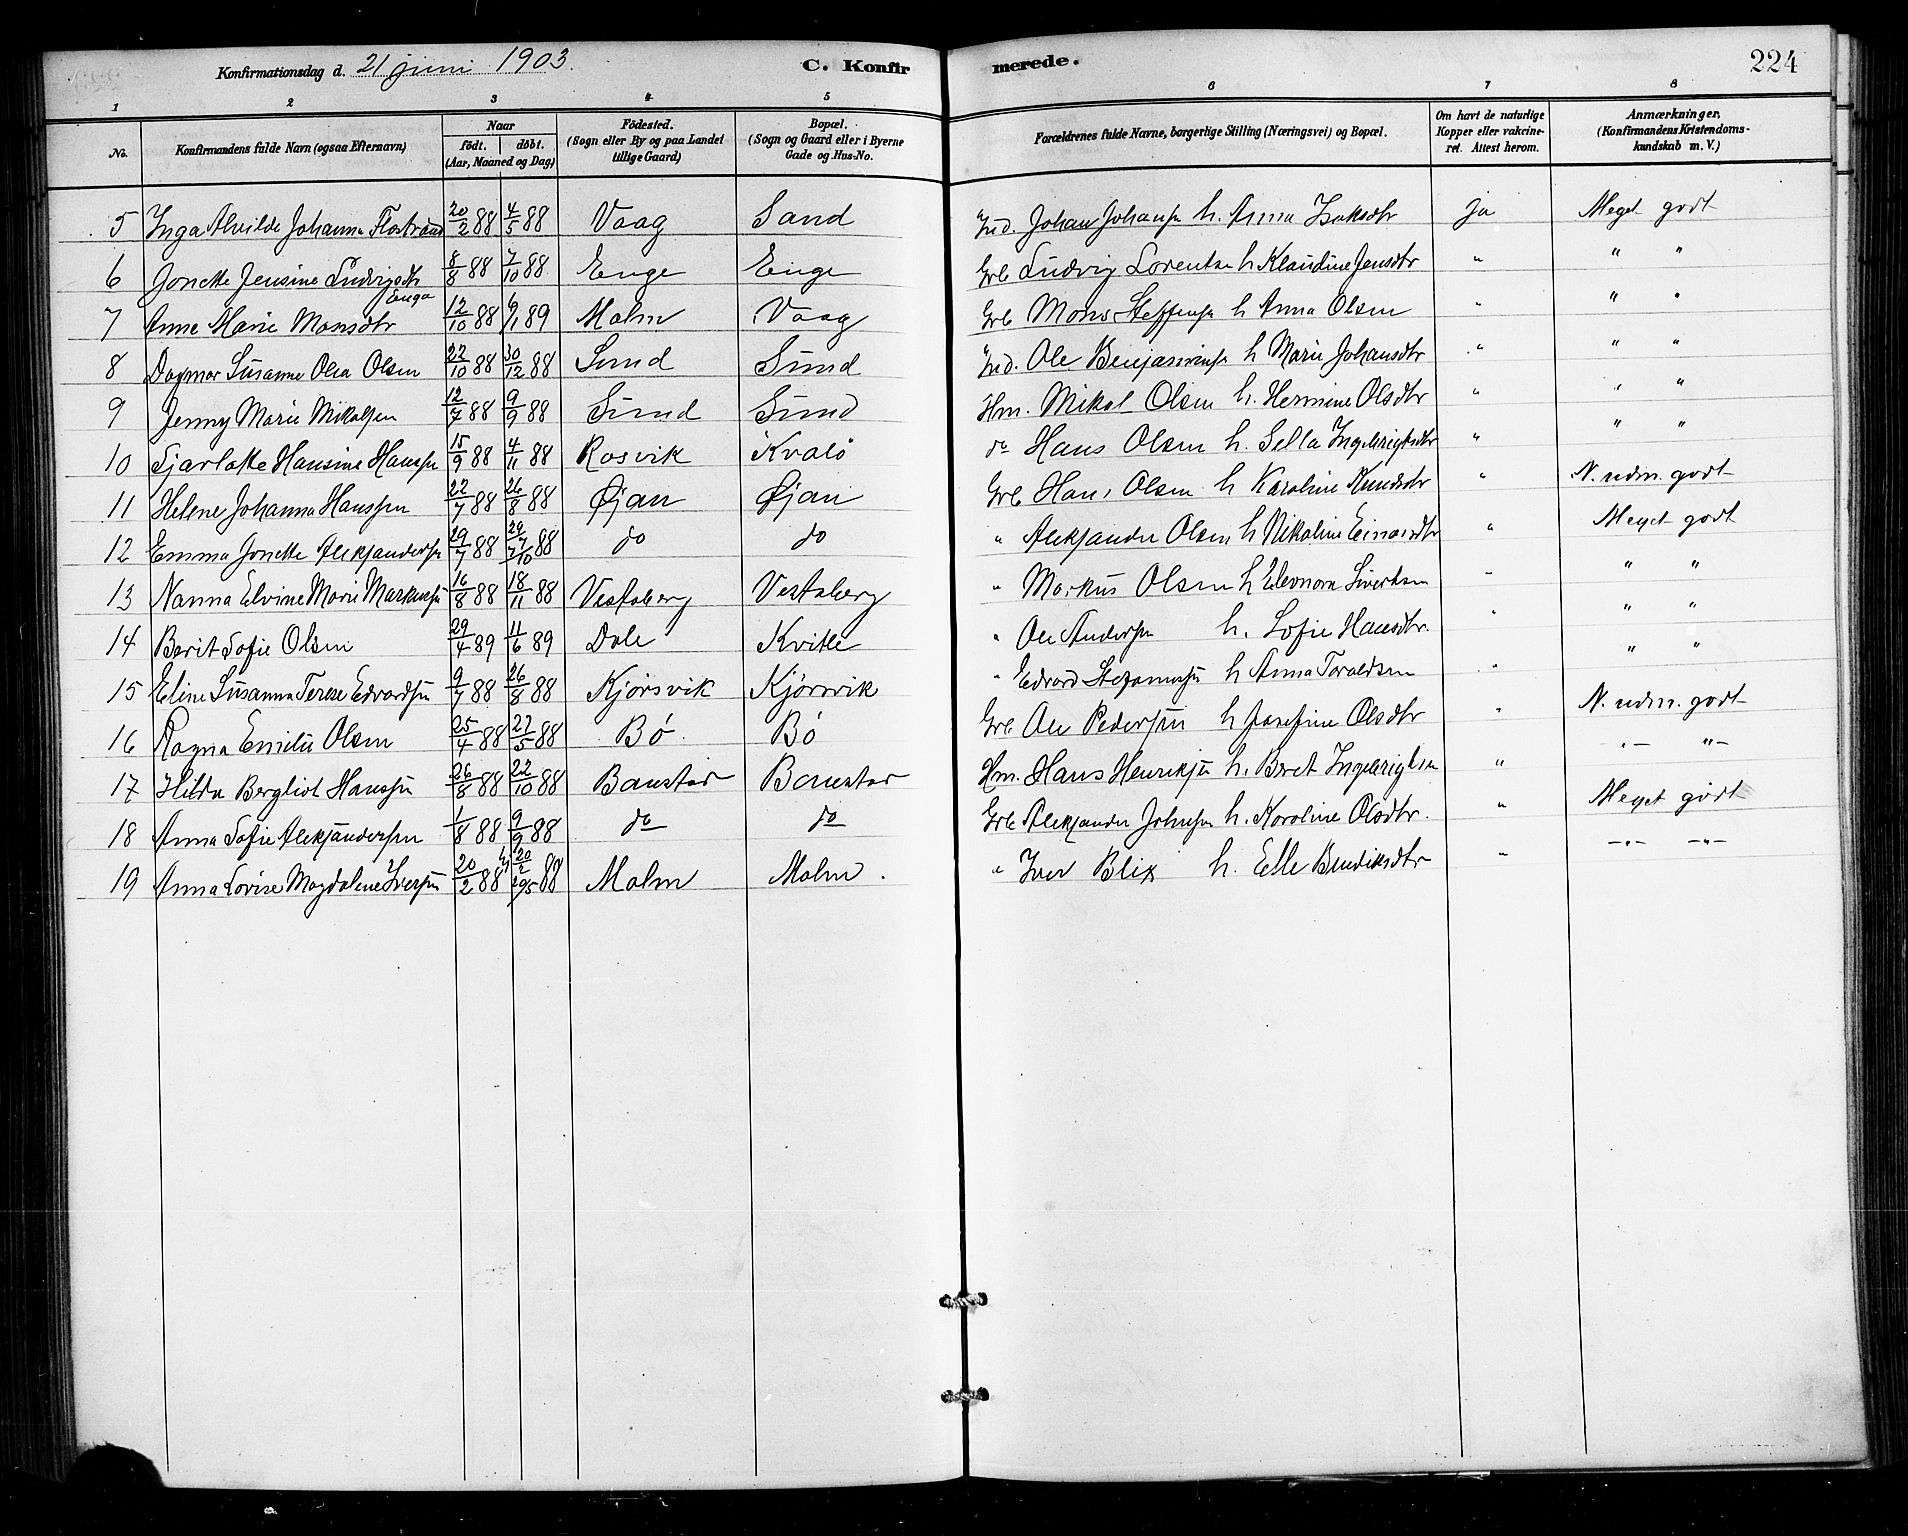 Konfirmationsdag d. 21 juni 1903. C. Konfir merede. 224
1 2 3 4 5 6 7 8
No. Konfirmandens fulde Navn (ogsaa Efternavn) Naar födt. döbt. (Aar, Maaned og Dag) Födested. (Sogn eller By og paa Landet tillige Gaard) Bopæl. (Sogn og Gaard eller i Byerne Gade og Hus-No. Forældrenes fulde Navne, borgerlige Stilling (Næringsvei) og Bopæl. Om havt de naturlige Kopper eller vakcineret. Attest herom. Anmærkninger, (Konfirmandens Kristendomskundskab m. V.)
5 Inga Alvilde Johanna Flostrand 20/2 88 4/5 88 Vaag Sand Ind. Johan Johansen h. Anna Isaksdtr ja Meget godt
6 Jonette Jensine Ludvigsdtr Enga 8/8 88 7/10 88 Enge Enge Grb Ludvig Lorentsen h Klaudine Jensdtr " " "
7 Anne Marie Monsdtr 12/10 88 6/1 89 Malm Vaag Grb Mons Steffensen h Anna Olsen " " "
8 Dagmar Susanne Olea Olsen 22/10 88 30/12 88 Sund Sund Ind. Ole Benjaminsen h Marie Johansdtr " " "
9 Jenny Marie Mikalsen 12/7 88 9/9 88 Sund Sund Hm. Mikal Olsen h. Hermine Olsdtr " " "
10 Sjarlotte Hansine Hanssen 15/9 88 4/11 88 Rosvik Kvalö do Hans Olsen h. Sella Ingebrigtsdtr " " "
11 Helene Johanna Hanssen 22/7 88 26/8 88 Øjan Øjan Grb Hans Olsen h Karoline Knudsdtr " N. udm. godt
12 Emma Jonette Aleksandersen 29/7 88 29/7 7/10 88 do do " Aleksander Olsen h Nikoline Einarsdtr " Meget godt
13 Nanna Elvine Marie Markussen 16/8 88 18/11 88 Vestaberg Vestaberg " Markus Olsen h Eleonora Sivertsen " " "
14 Berit Sofie Olsen 29/4 89 11/6 89 Dale Kvitle " Ole Andersen h. Sofie Hansdtr. " " "
15 Eline Susanna Terese Edvardsen 9/7 88 26/8 88 Kjørsvik Kjørsvik " Edvard Stefanussen h Anna Toraldsen " " "
16 Ragna Emilie Olsen 25/4 88 27/5 88 Bö Bö Grb Ole Pedersen h Josefine Olsdtr " N. udm. godt
17 Hilda Bergliot Hanssen 26/8 88 22/10 88 Baustad Baustad Hm. Hans Henriksen h. Beret Ingebrigtsen " -"- -"-
18 Anna Sofie Aleksandersen 1/8 88 9/9 88 do do Grb Aleksander Johnsen h. Karoline Olsdtr. " Meget godt
19 Anna Lovise Magdalene Iversen 20/2 88 hj 20/2 20/5 88 Malm Malm. " Iver Blix h. Elle Bendiksdtr " -"- -"-